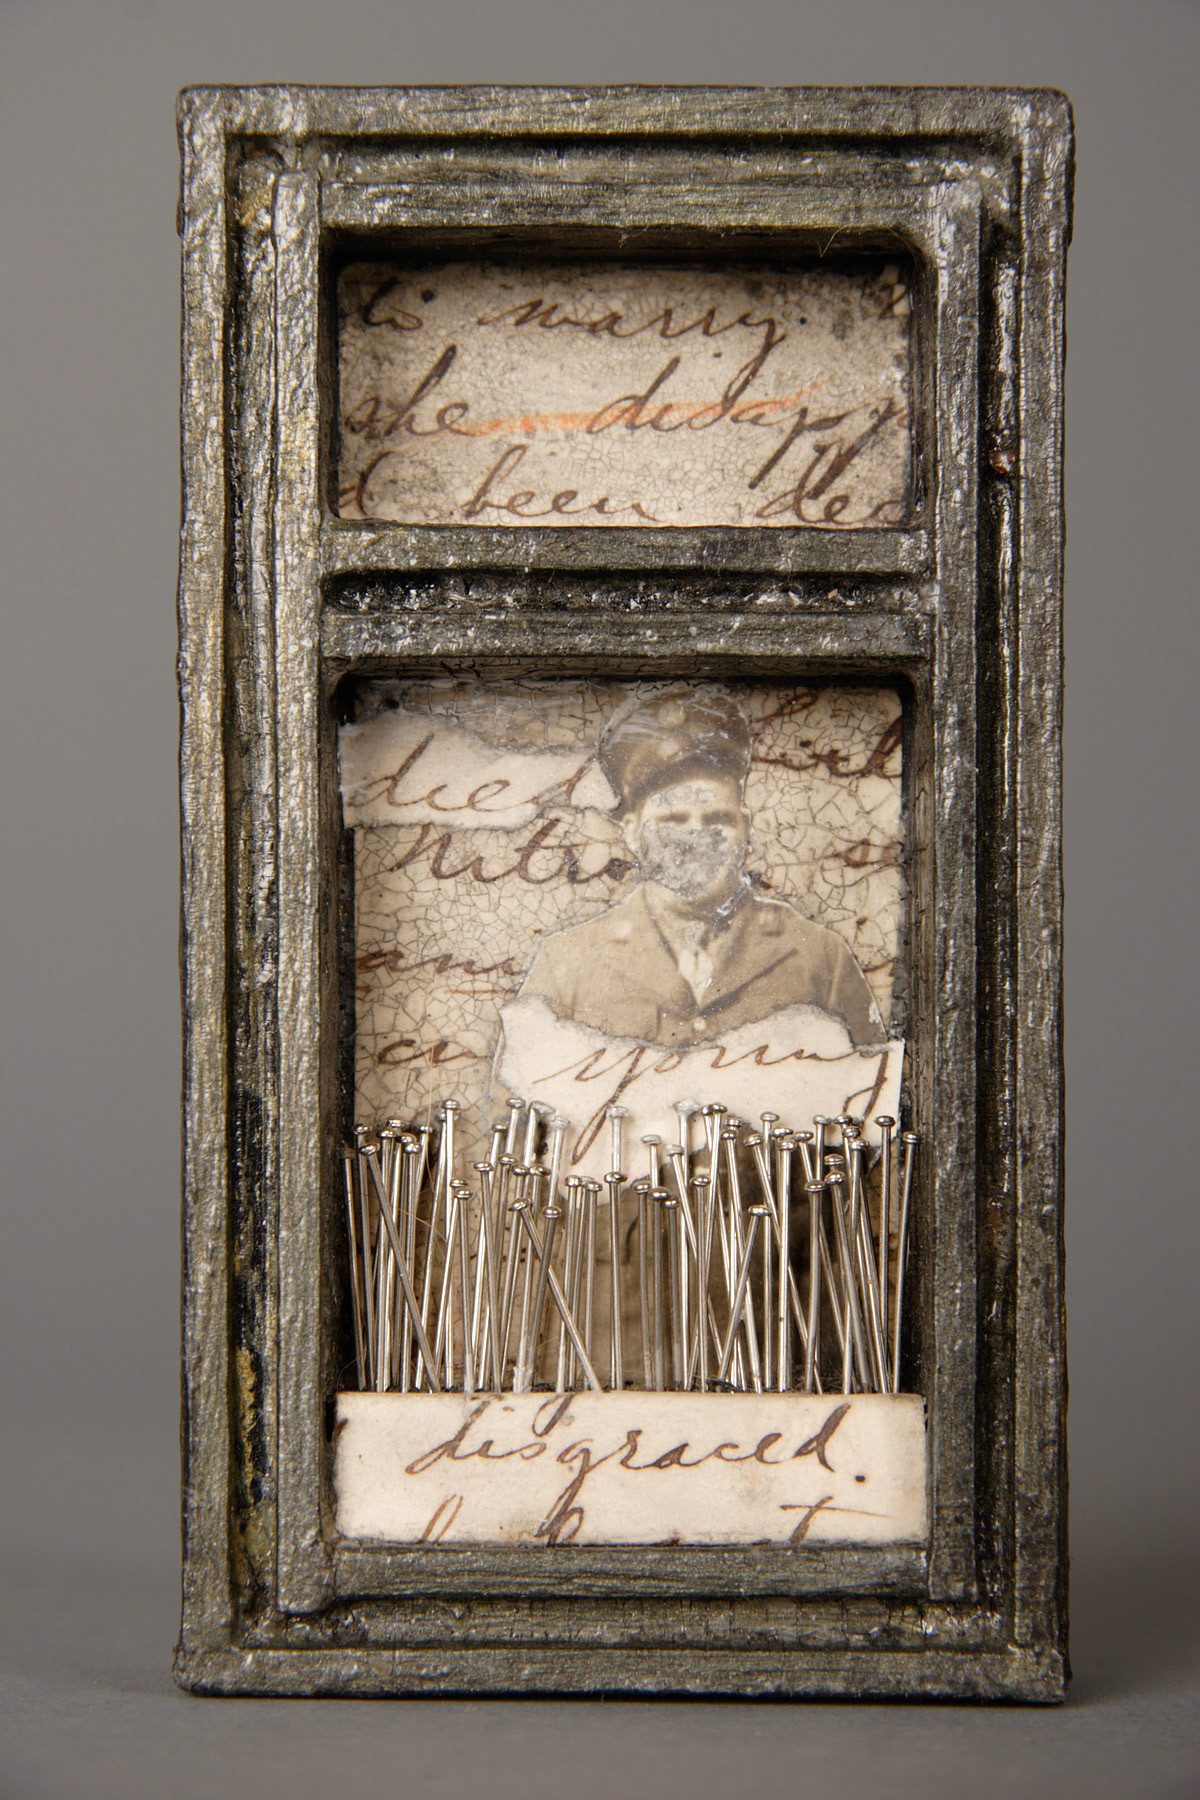 to marry.
she disapp
d been dec
died
Nitro
any
young
disgraced.